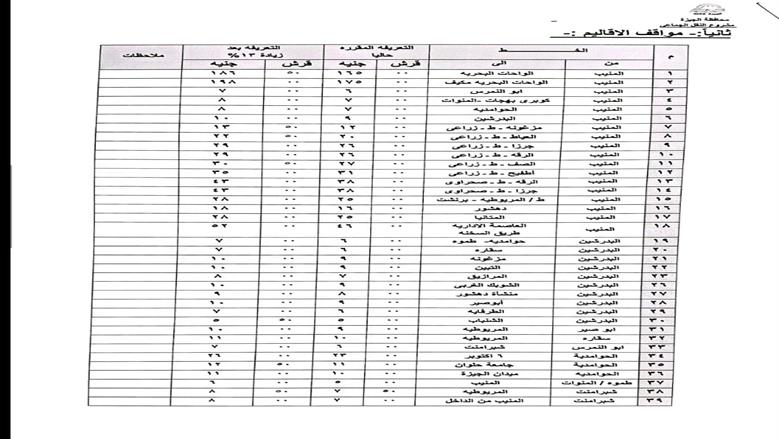 محافظة الجيزة
مشروع النقل الجماعى
ثانياً:- مواقف الاقاليم :-
م الخط التعريفه المقرره حاليا التعريفه بعد زيادة ١٣% ملاحظات
من الى قرش جنيه قرش جنيه
١ المنيب الواحات البحريه ٠٠ ١٦٥ ٥٠ ١٨٦
٢ المنيب الواحات البحريه مكيف ٠٠ ١٧٥ ٠٠ ١٩٨
٣ المنيب ابو النمرس ٠٠ ٦ ٠٠ ٧
٤ المنيب كوبرى بهجات -المنوات ٠٠ ٧ ٠٠ ٨
٥ المنيب الحوامديه ٠٠ ٧ ٠٠ ٨
٦ المنيب البدرشين ٠٠ ٩ ٠٠ ١٠
٧ المنيب مزغونه - ط - زراعى ٠٠ ١٢ ٥٠ ١٣
٨ المنيب العياط - ط - زراعى ٠٠ ٢٠ ٥٠ ٢٢
٩ المنيب جرزا - ط - زراعى ٠٠ ٢٦ ٠٠ ٢٩
١٠ المنيب الرقه - ط - زراعى ٠٠ ٢٦ ٠٠ ٢٩
١١ المنيب الصف - ط - زراعى ٠٠ ٢٧ ٥٠ ٣٠
١٢ المنيب أطفيح - ط - زراعى ٠٠ ٣١ ٠٠ ٣٥
١٣ المنيب الرقه - ط - صحراوى ٠٠ ٣٨ ٠٠ ٤٣
١٤ المنيب جرزا - ط - صحراوى ٠٠ ٣٨ ٠٠ ٤٣
١٥ المنيب ط / المريوطيه - برنشت ٠٠ ٢٥ ٠٠ ٢٨
١٦ المنيب دهشور ٠٠ ١٦ ٠٠ ١٨
١٧ المنيب المتانيا ٠٠ ٢٥ ٠٠ ٢٨
١٨ المنيب العاصمة الاداريه طريق السخنه ٠٠ ٤٦ ٠٠ ٥٢
١٩ البدرشين حوامديه- طموه ٠٠ ٦ ٠٠ ٧
٢٠ البدرشين سقاره ٠٠ ٦ ٠٠ ٧
٢١ البدرشين مزغونه ٠٠ ٩ ٠٠ ١٠
٢٢ البدرشين التبين ٠٠ ٩ ٠٠ ١٠
٢٣ البدرشين المرازيق ٠٠ ٧ ٠٠ ٨
٢٦ البدرشين الشوبك الغربى ٠٠ ٩ ٠٠ ١٠
٢٧ البدرشين منشأة دهشور ٠٠ ٨ ٠٠ ٩
٢٨ البدرشين أبوصير ٠٠ ٩ ٠٠ ١٠
٢٩ البدرشين الطرفايه ٠٠ ٦ ٠٠ ٧
٣٠ البدرشين الشنباب ٠٠ ٥ ٥٠ ٥
٣١ ابو صير المريوطيه ٠٠ ٩ ٠٠ ١٠
٣٢ سقاره المريوطيه ٠٠ ١٠ ٠٠ ١١
٣٣ ابو النمرس شبرامنت ٠٠ ٦ ٠٠ ٧
٣٤ الحوامدية ٦ اكتوبر ٠٠ ٢٣ ٠٠ ٢٦
٣٥ الحوامدية جامعة حلوان ٠٠ ١١ ٥٠ ١٢
٣٦ الحوامديه ميدان الجيزة ٠٠ ١٠ ٠٠ ١١
٣٧ طموه / المنوات المنيب ٠٠ ٥ ٠٠ ٦
٣٨ شبرامنت المريوطيه ٥٠ ٧ ٥٠ ٨
٣٩ شبرامنت المنيب من الداخل ٠٠ ٧ ٠٠ ٨